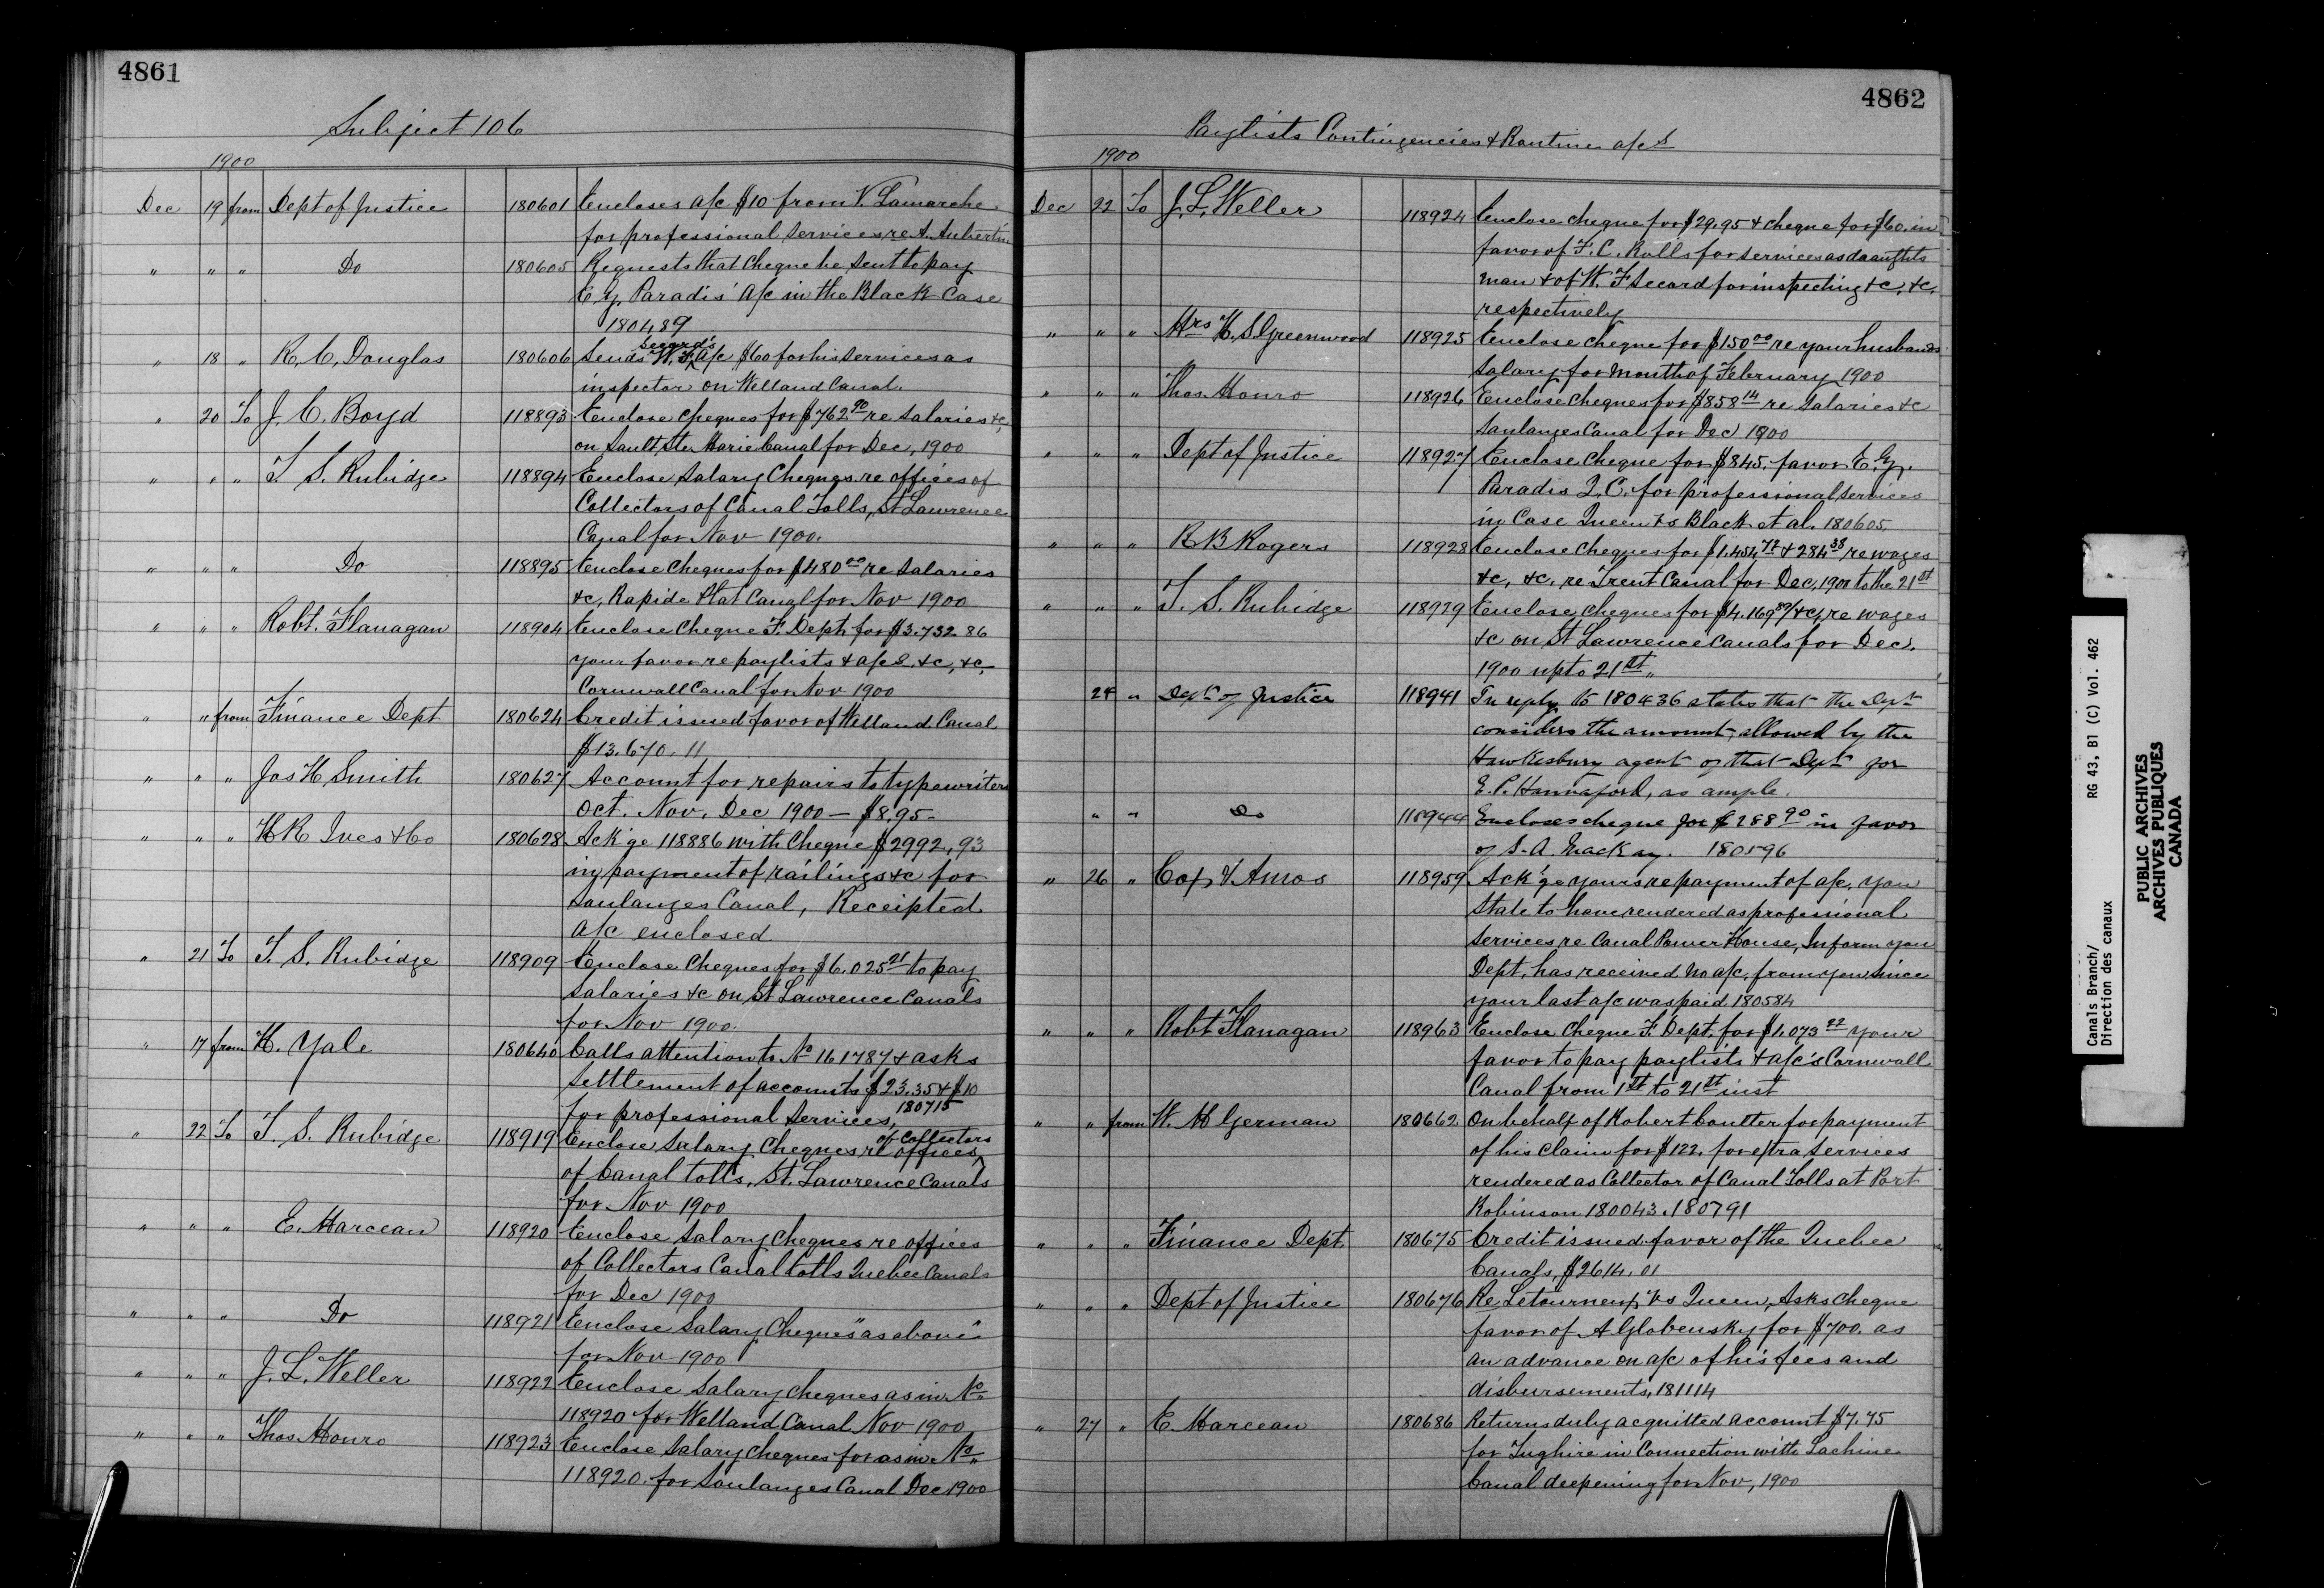 4861
Subject 106
1900
Dec 19 from Dept of Justice 180601 Encloses a/c $10 from V. Lamarche
for professional services re A. Aubertin
" " " Do 180605 Requests that cheque be sent to pay
E. G. Paradis' a/c in the Black Case
180489
" 18 " R. C. Douglas 180606 Sends W. F. Secord's a/c $60 for his services as
inspector on Welland Canal.
" 20 To J. C. Boyd 118893 Enclose cheques for $762.90 re salaries &c,
on Sault Ste Marie Canal for Dec, 1900
" " " T. S. Rubidge 118894 Enclose Salary Cheques re offices of
Collectors of Canal Tolls, St Lawrence
Canal for Nov 1900.
" " " Do 118895 Enclose Cheques for $480.00 re Salaries
&c, Rapide Plat Canal for Nov 1900
" " " Robt. Flanagan 118904 Enclose Cheque F. Dept, for $3.732.86
your favor re paylists & a/cs. &c, &c,
Cornwall Canal for Nov 1900
" " from Finance Dept 180624 Credit issued favor of Welland Canal
$13.670.11
" " " Jas H Smith 180627 Account for repairs to typewriters
Oct. Nov. Dec 1900 — $8.95-
" " " H R Ives & Co 180628 Ack'ge 118886 with Cheque $2992,93
in payment of railings &c for
Soulanges Canal, Receipted
a/c enclosed
" 21 To T. S. Rubidge 118909 Enclose Cheques for $6,025.21 to pay
Salaries &c on St Lawrence Canals
for Nov 1900.
" 17 from H. Yale 180640 Calls attention to No 161787 & asks
Settlement of accounts $23.35 & $10
for professional services, 180715
" 22 To T. S. Rubidge 118919 Enclose Salary Cheques re offices of Collectors
of Canal tolls, St. Lawrence Canals
for Nov 1900
" " " E. Marceau 118920 Enclose Salary Cheques re offices
of Collectors Canal tolls Quebec Canals
for Dec 1900
" " " Do 118921 Enclose Salary Cheques "as above"
for Nov 1900
" " " J. L. Weller 118922 Enclose Salary cheques as in No
118920 for Welland Canal Nov 1900
" " " Thos. Monro 118923 Enclose Salary Cheques for as in No
118920. for Soulanges Canal Dec 1900
4862
Paylists Contingencies & Routine a/cs
1900
Dec 22 To J. L. Weller 118924 Enclose cheque for $29.95 & cheque for $60. in
favor of F. C. Rolls for services as draughts
man & of W. F Secord for inspecting &c, &c,
respectively
" " " Mrs H. S Greenwood 118925 Enclose cheque for $150.00 re your husbands
Salary for month of February 1900
" " " Thos. Monro 118926 Enclose cheques for $858.14 re salaries &c
Soulanges Canal for Dec 1900
" " " Dept of Justice 118927 Enclose cheque for $845. favor E. G.
Paradis Q. C. for professional services
in Case Queen vs Black et al. 180605
" " " R B Rogers 118928 Enclose cheques for $1.454.72 & 284.38 re wages
&c, &c. re Trent Canal for Dec, 1900 to the 21st
" " " T. S. Rubidge 118929 Enclose cheques for $4.169.89 &c, re wages
&c on St Lawrence Canals for Dec.
1900 up to 21st "
24 " Dept of Justice 118941 In reply to 180436 states that the Dept
considers the amount, allowed by the
Hawkesbury agent of that Dept for
E. P. Hannaford, as ample.
" " Do 118944 Encloses cheque for $288.90 in favor
of S. A. Mackay. 180596
" 26 " Cox & Amos 118959 Ack'ge yours re payment of a/c, you
state to have rendered as professional
services re Canal Power House, Inform you
Dept, has received no a/c, from you since
your last a/c was paid 180584
" " " Robt Flanagan 118963 Enclose Cheque F. Dept. for $1.073.22 your
favor to pay paylists & a/c's Cornwall
Canal from 1st to 21st inst
" " from W. M German 180662 On behalf of Robert Coulter for payment
of his claim for $122. for extra services
rendered as Collector of Canal Tolls at Port
Robinson 180043. 180791
" " " Finance Dept 180675 Credit issued favor of the Quebec
Canals, $2614.01
" " " Dept of Justice 180676 Re Letourneux vs Queen, Asks cheque
favor of A Globensky for $700. as
an advance on a/c of his fees and
disbursements, 181114
" 27 " E. Marceau 180686 Returns duly acquitted account $7.75
for Tug hire in Connection with Lachine
Canal deepening for Nov, 1900
Canals Branch/ RG 43, B1 (C) Vol. 462
Direction des canaux
PUBLIC ARCHIVES
ARCHIVES PUBLIQUES
CANADA